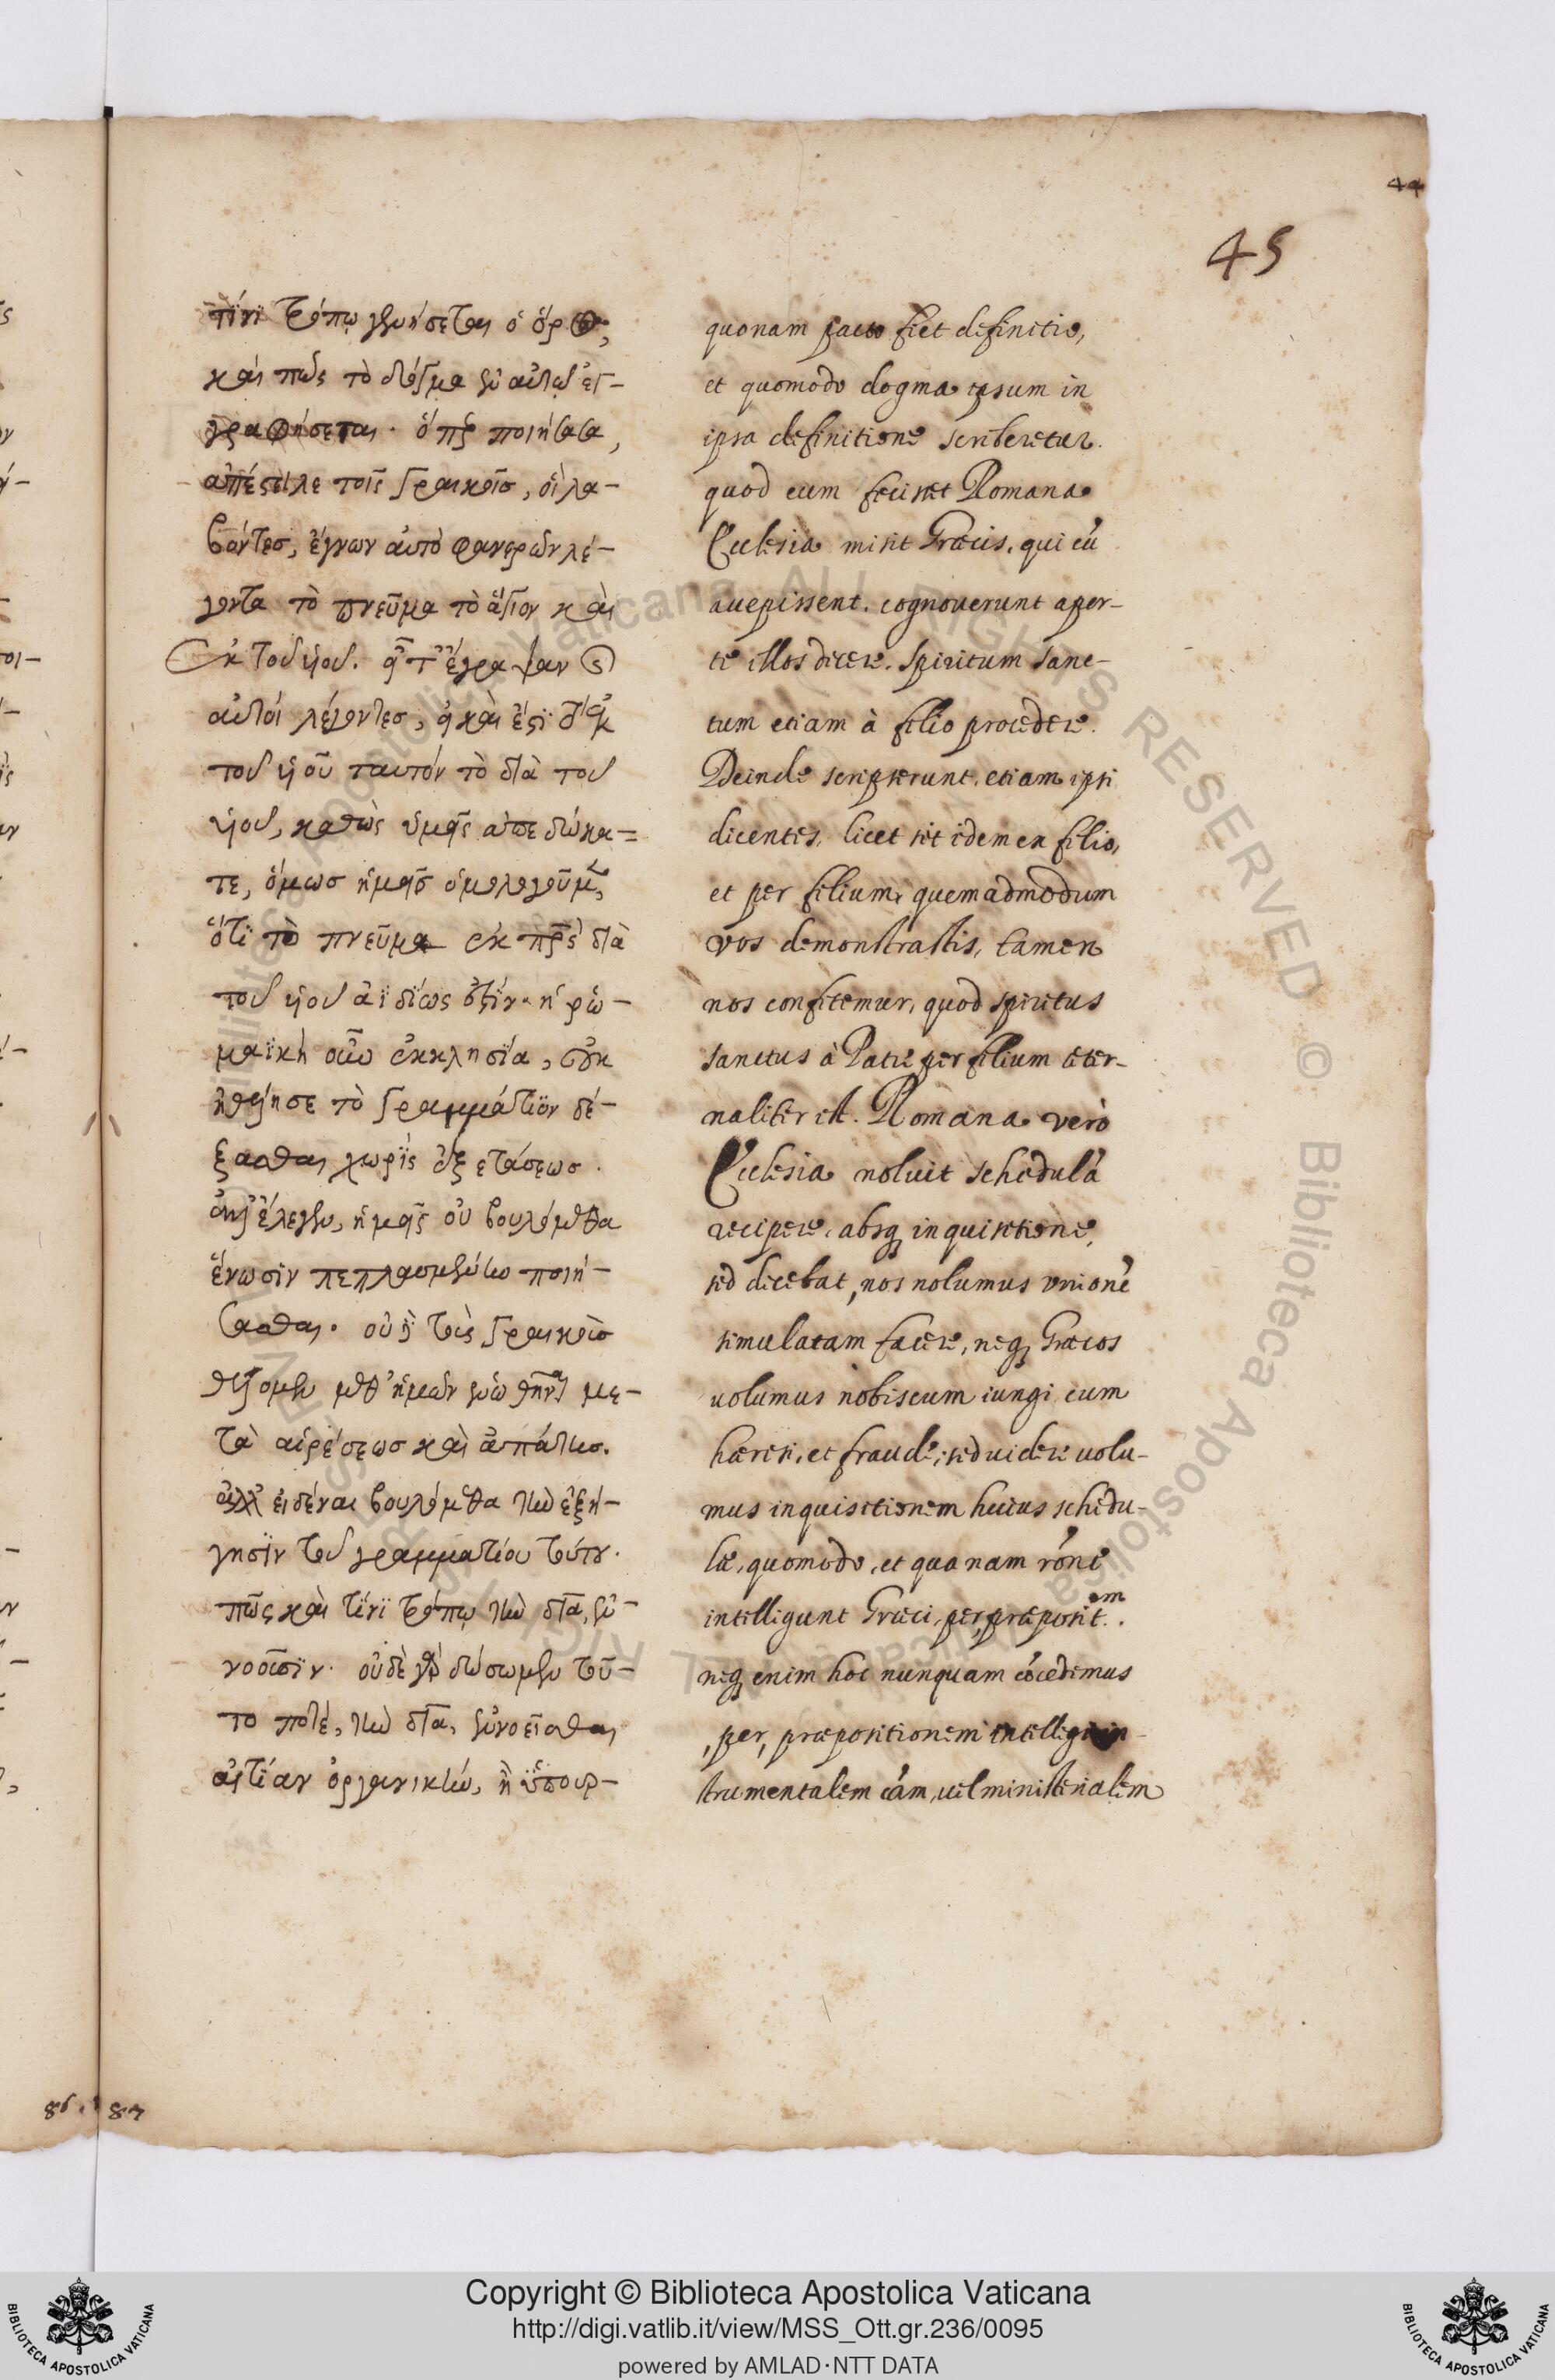 44
45
τίνι τρόπῳ γενήσεται ὁ ὅρος,
καὶ πῶς τὸ δόγμα ἐν αὐτῷ ἐγ-
γραφήσεται· ὅπερ ποιήσασα,
ἀπέστειλε τοῖς Γραικοῖσ, οἳ λα-
βόντεσ, ἔγνων αὐτὸ φανερῶν λέ-
γοντα τὸ πνεῦμα τὸ ἅγιον καὶ
ἐκ τοῦ υἱοῦ. ἔγραψαν
αὐτοὶ λέγοντεσ, καὶ ἔστι ἐκ
τοῦ υἱοῦ ταυτόν τὸ διὰ τοῦ
υἱοῦ, καθὼς ὑμεῖς ἀπεδώκα-
τε, ὅμωσ ἡμεῖσ ὁμολογοῦμεν,
ὅτι τὸ πνεῦμα ἐκ πρς διὰ
τοῦ υἱοῦ ἀϊδίως ἐστίν. ἡ ῥω-
μαϊκὴ οὖν ἐκκλησία, οὐκ
ἠθέλησε τὸ Γραμμάτιον δέ-
ξασθαι χωρὶς ἐξετάσεωσ.
ἀλλ' ἔλεγεν, ἡμεῖς οὐ βουλόμεθα
ἕνωσιν πεπλασμένην ποιή-
σασθαι. οὐδὲ τοὺς Γραικοὺσ
θέλομεν μεθ' ἡμῶν ἑνωθῆναι με-
τὰ αἱρέσεωσ καὶ ἀπάτησ.
ἀλλ' εἰδέναι βουλόμεθα τὴν ἐξή-
γησιν τοῦ γραμματίου τούτου.
πῶς καὶ τίνι τρόπῳ τὴν διὰ, ἐν-
νοοῦσιν. οὐδὲ γὰρ δώσωμεν τοῦ-
το ποτέ, τὴν διὰ, ἐννοεῖσθαι
αἰτίαν ὀργανικὴν, ἢ ὑπουρ-
quonam pacto fiet definitio,
et quomodo dogma ipsum in
ipsa definitione scriberetur.
quod cum fecisset Romana
Ecclesia misit Græcis, qui cũ
accepissent, cognouerunt aper-
te illos dicere, Spiritum Sanc-
tum etiam à filio procedere.
Deinde scripserunt, etiam ipsi
dicentes, licet sit idem ex filio,
et per filium, quemadmodum
vos demonstrastis, tamen
nos confitemur, quod spiritus
sanctus à Patre per filium æter-
naliter est. Romana verò
Ecclesia noluit schedulã
recipere, absq inquisitione,
sed dicebat, nos nolumus unionẽ
simulatam facere, neq Græcos
volumus nobiscum iungi cum
hæresi, et fraude, sed uidere uolu-
mus inquisitionem huius schedu-
læ, quomodo, et qua nam rõne
intelligunt Græci, per, præposit.em
neq enim hoc nunquam cõcedemus
,per, præpositionem intelligi in-
strumentalem cãm, uel ministerialem
86. 87
Copyright © Biblioteca Apostolica Vaticana
http://digi.vatlib.it/view/MSS_Ott.gr.236/0095
powered by AMLAD·NTT DATA
BIBLIOTECA APOSTOLICA VATICANA
BIBLIOTECA APOSTOLICA VATICANA